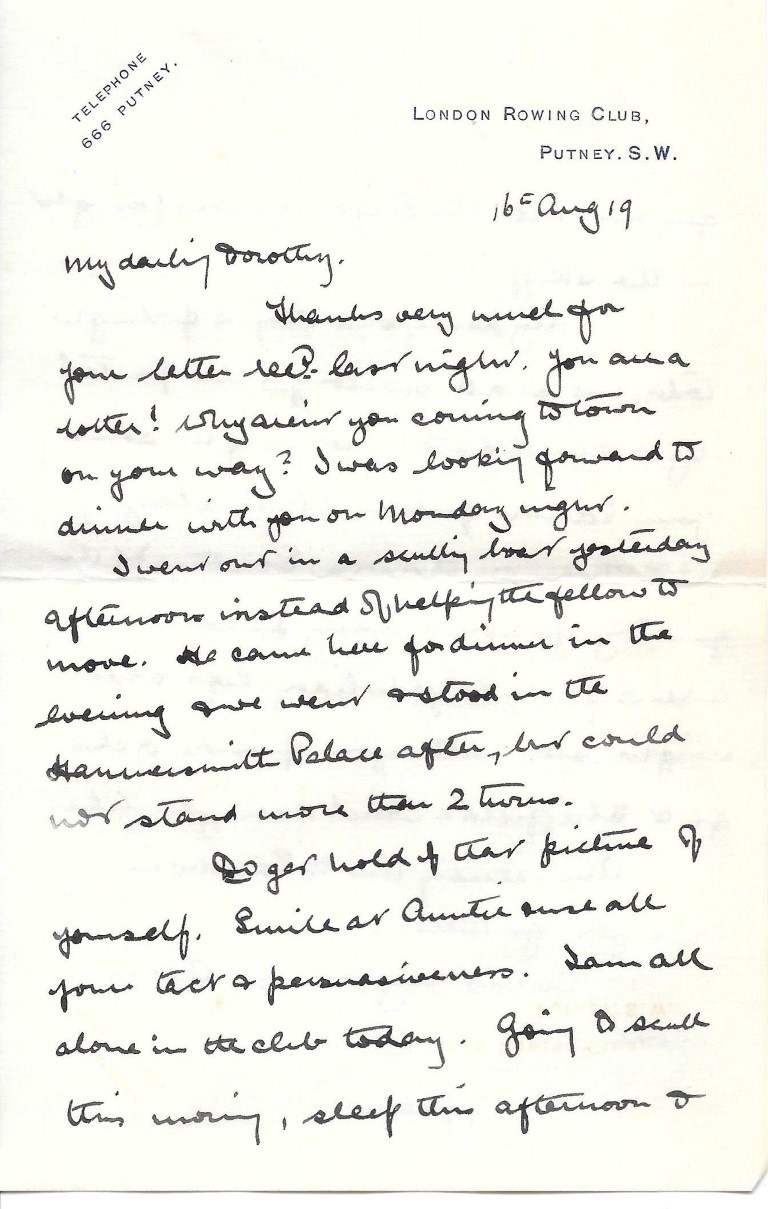 TELEPHONE
666 PUTNEY.
LONDON ROWING CLUB,
PUTNEY. S.W.
16th Aug 19
My darling Dorothy.
Thanks very much for
your letter recd. last night. You are a
rotter! Why aren't you coming to town
on your way? I was looking forward to
dinner with you on Monday night.
I went out in a sculling boat yesterday
afternoon instead of helping the fellow to
move. He came here for dinner in the
evening & we went & stood in the
Hammersmith Palace after, but could
not stand more than 2 turns.
Do get hold of that picture of
yourself. Smile at Auntie & use all
your tact & persuasiveness. I am all
alone in the club today. Going to scull
this morning, sleep this afternoon &